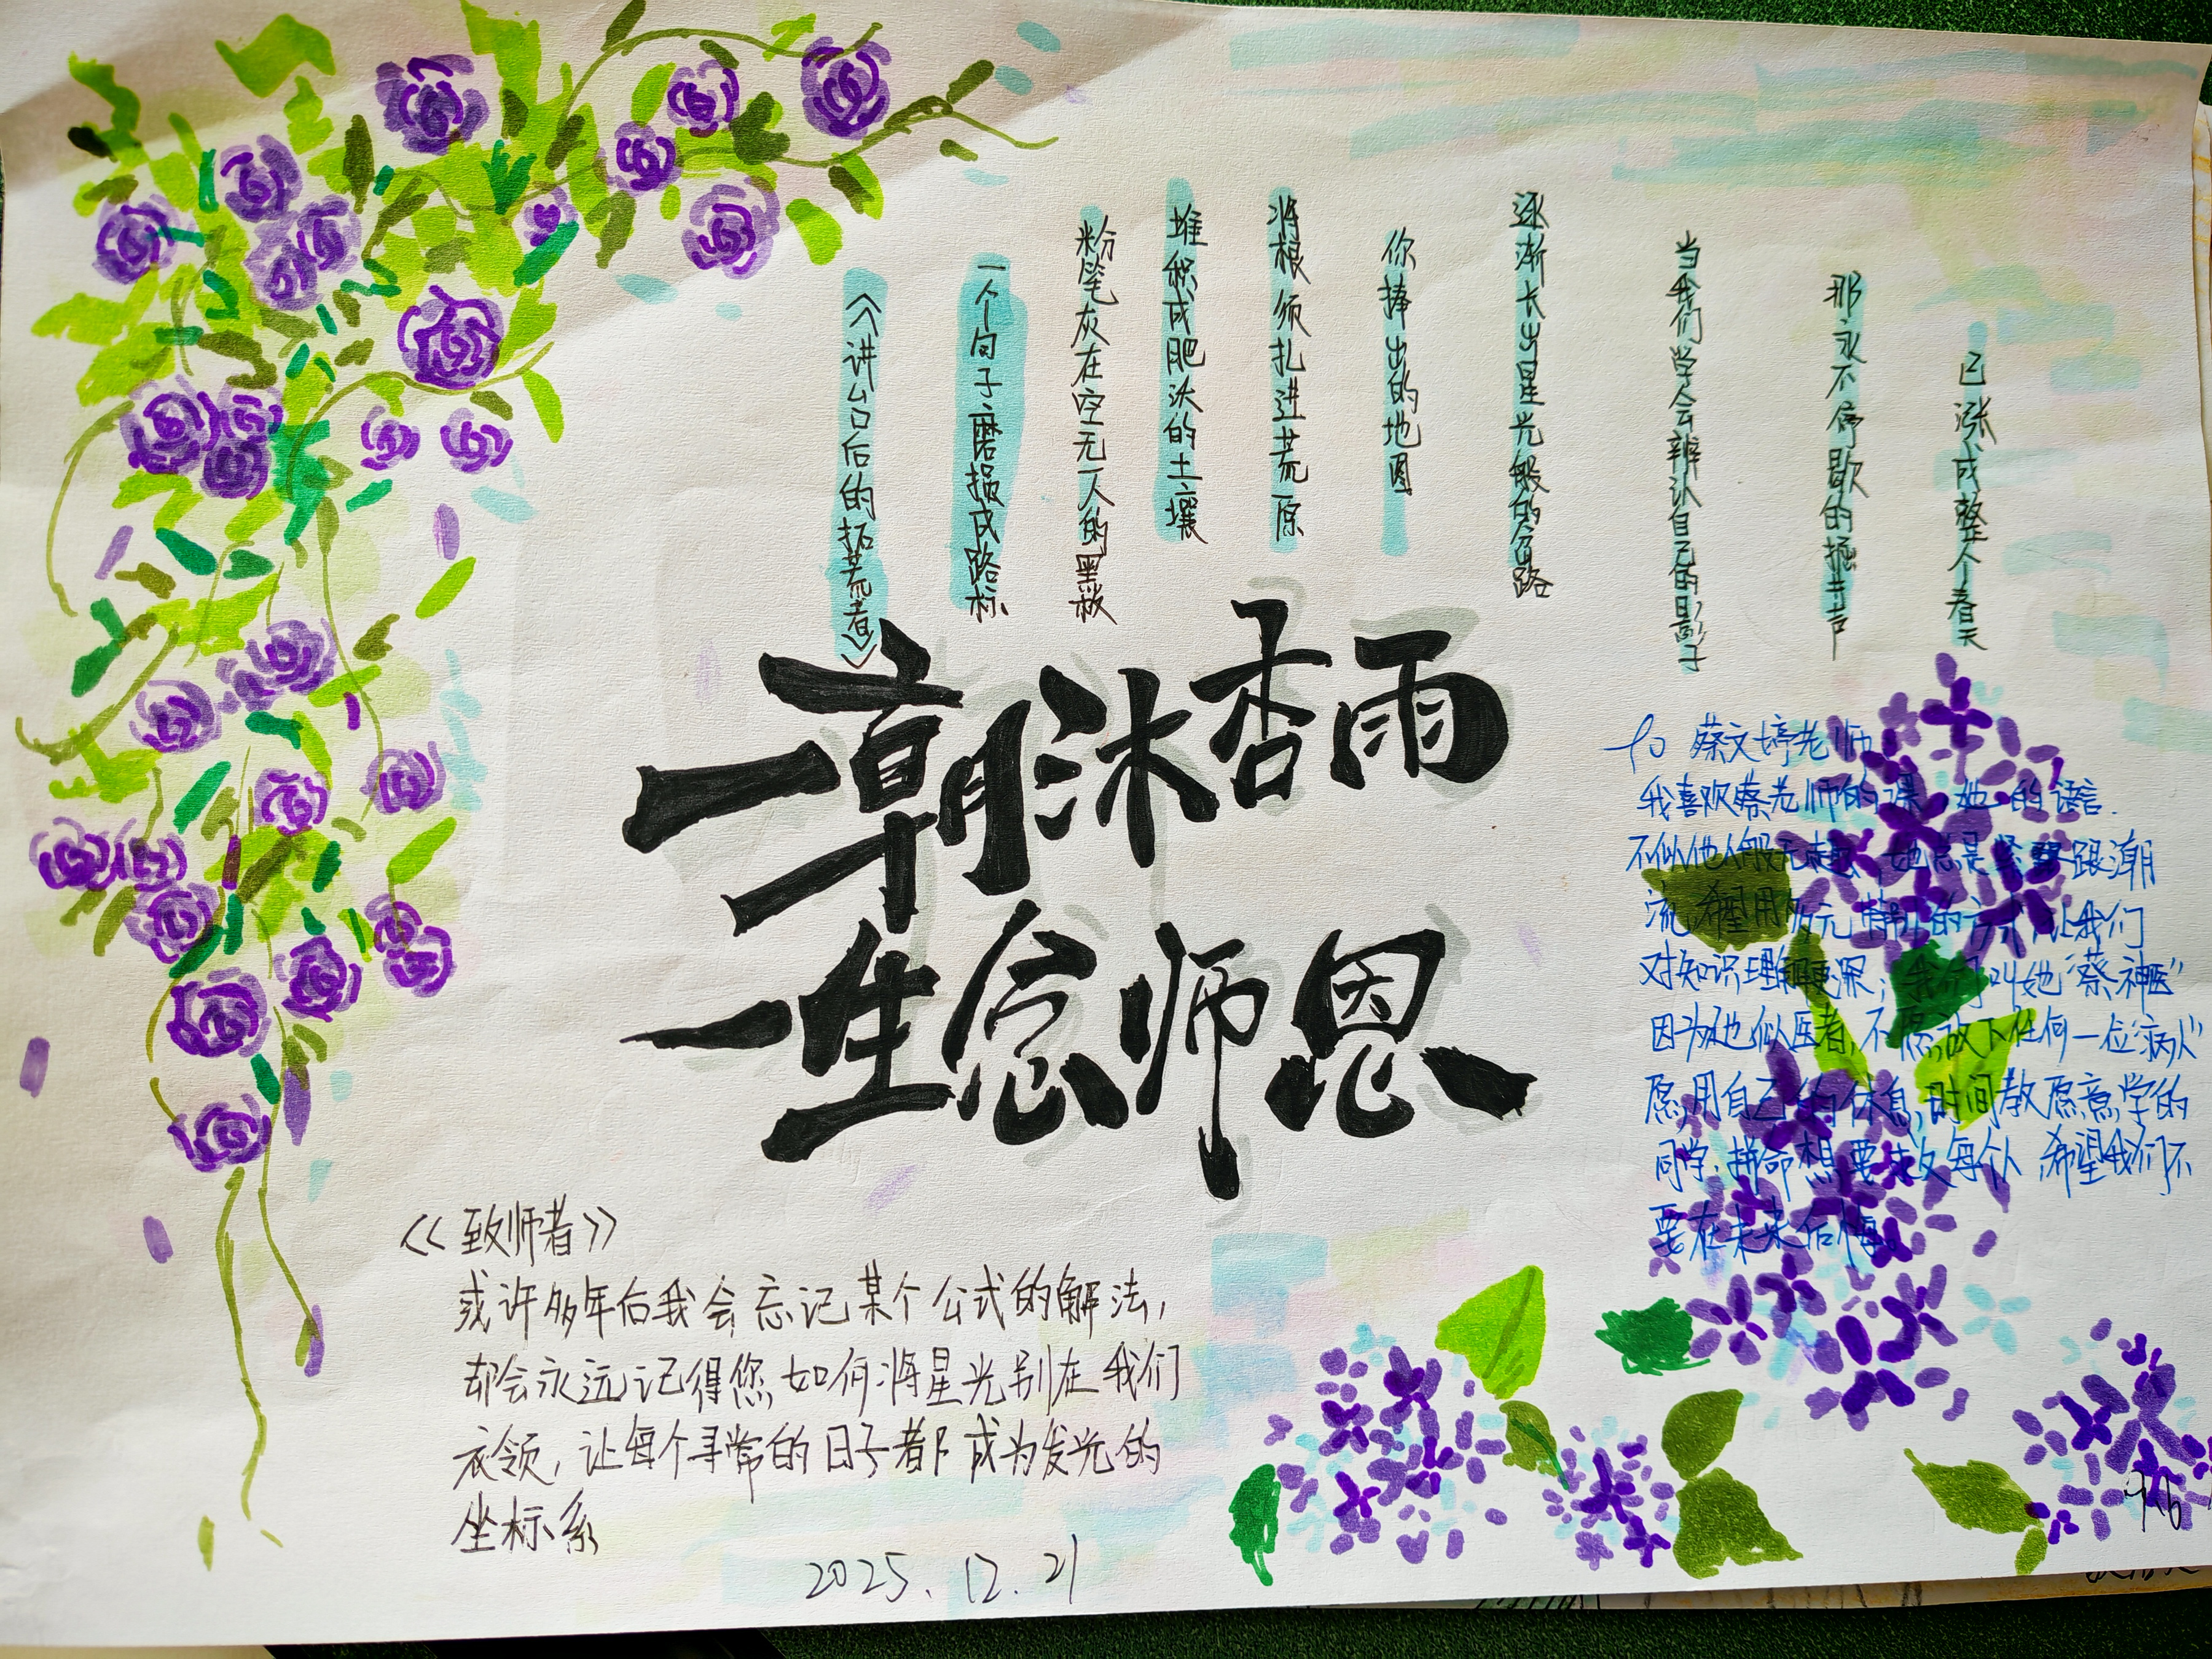 《讲台后的拓荒者》
一个句子磨损成路标
粉笔灰在空无一人的黑板
堆积成肥沃的土壤
将根须扎进荒原
你捧出的地图
逐渐长出星光般的道路
当我们学会辨认自己的影子
那永不停歇的掘井声
已涨成整个春天
一朝沐杏雨
一生念师恩
to 蔡文婷老师
我喜欢蔡老师的课,她的语言.
不似他人般无趣,她总是紧跟潮
流,希望用多元 的方式让我们
对知识理解更深;我们叫她“蔡神医”
因为她似医者,不愿放下任何一位“病人”
愿用自己的休息时间教愿意学的
同学,拼命想要救每个人,希望我们不
要在未来后悔。
《致师者》
或许多年后我会忘记某个公式的解法,
却会永远记得您如何将星光别在我们
衣领,让每个寻常的日子都成为发光的
坐标系
2025.12.21